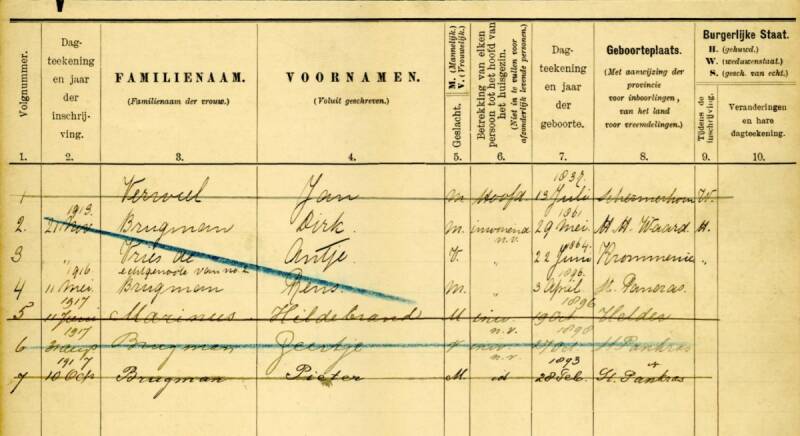 Volgnummer.
Dag-
teekening
en jaar
der
inschrij-
ving.
FAMILIENAAM.
(Familienaam der vrouw.)
VOORNAMEN.
(Voluit geschreven.)
Geslacht. M. (Mannelijk.)
V. (Vrouwelijk.)
Betrekking van elken
persoon tot het hoofd van
het huisgezin.
(Niet in te vullen voor
afzonderlijk levende personen.)
Dag-
teekening
en jaar
der
geboorte.
Geboorteplaats.
(Met aanwijzing der
provincie
voor inboorlingen,
van het land
voor vreemdelingen.)
Burgerlijke Staat.
H. (gehuwd.)
W. (weduwenstaat.)
S. (gesch. van echt.)
Tijdens de
inschrijving.
Veranderingen
en hare
dagteekening.
1. 2. 3. 4. 5. 6. 7. 8. 9. 10.
1837.
1 Verwiel Jan M Hoofd 13 Juli Schermerhorn W.
1913. 1861
2. 21 Nov Brugman Dirk M. inwonend 29 Mei H.H. Waard H.
n.v. 1864.
3 " Vries de Antje V. " 22 Juni Krommenie "
1916 echtgenoote van no 2 1896.
4 11 Mei Brugman Rens. M. " 3 April St. Pancras.
1917 1896
5 11 Juni Marinus Hildebrand M inw 19 Oct Helder
1917 n.v. 1890
6 Brugman Geertje V inw 17 Oct St Pankras
1917 n.v 1893
7 10 Oct Brugman Pieter M. id 28 Feb. St. Pankras